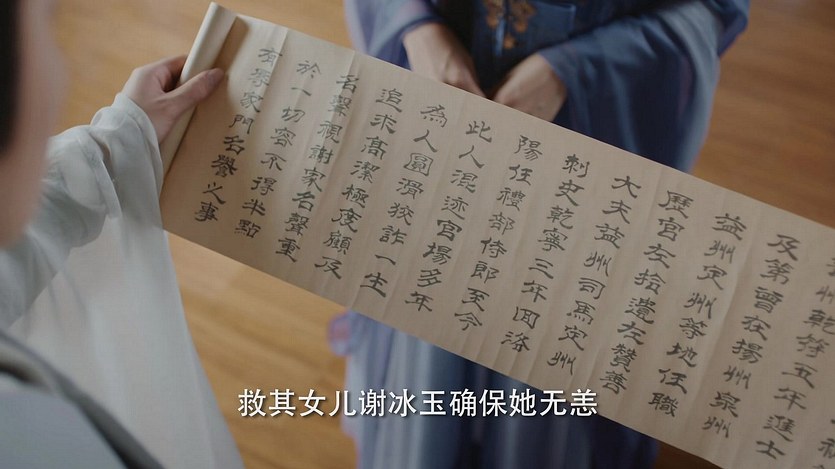 州乾五年進士
及第曾在揚州泉州
益州定州等地任職
歷官左拾遺左贊善
大夫益州司馬定州
刺史乾寧三年回洛
陽任禮部侍郎至今
此人混迹官場多年
為人圓滑狡詐一生
追求高潔極度顧及
名譽視謝家名聲重
於一切容不得半點
有辱家門名譽之事
救其女儿谢冰玉确保她无恙